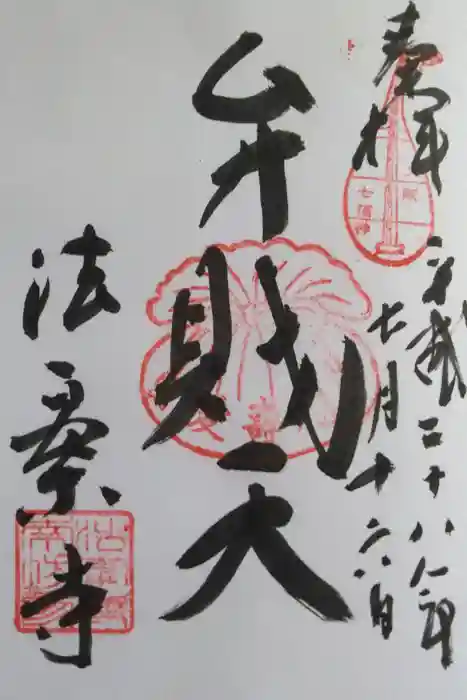 奉拝
平成二十八年
七月十六日
弁財天
法乗寺
七福神